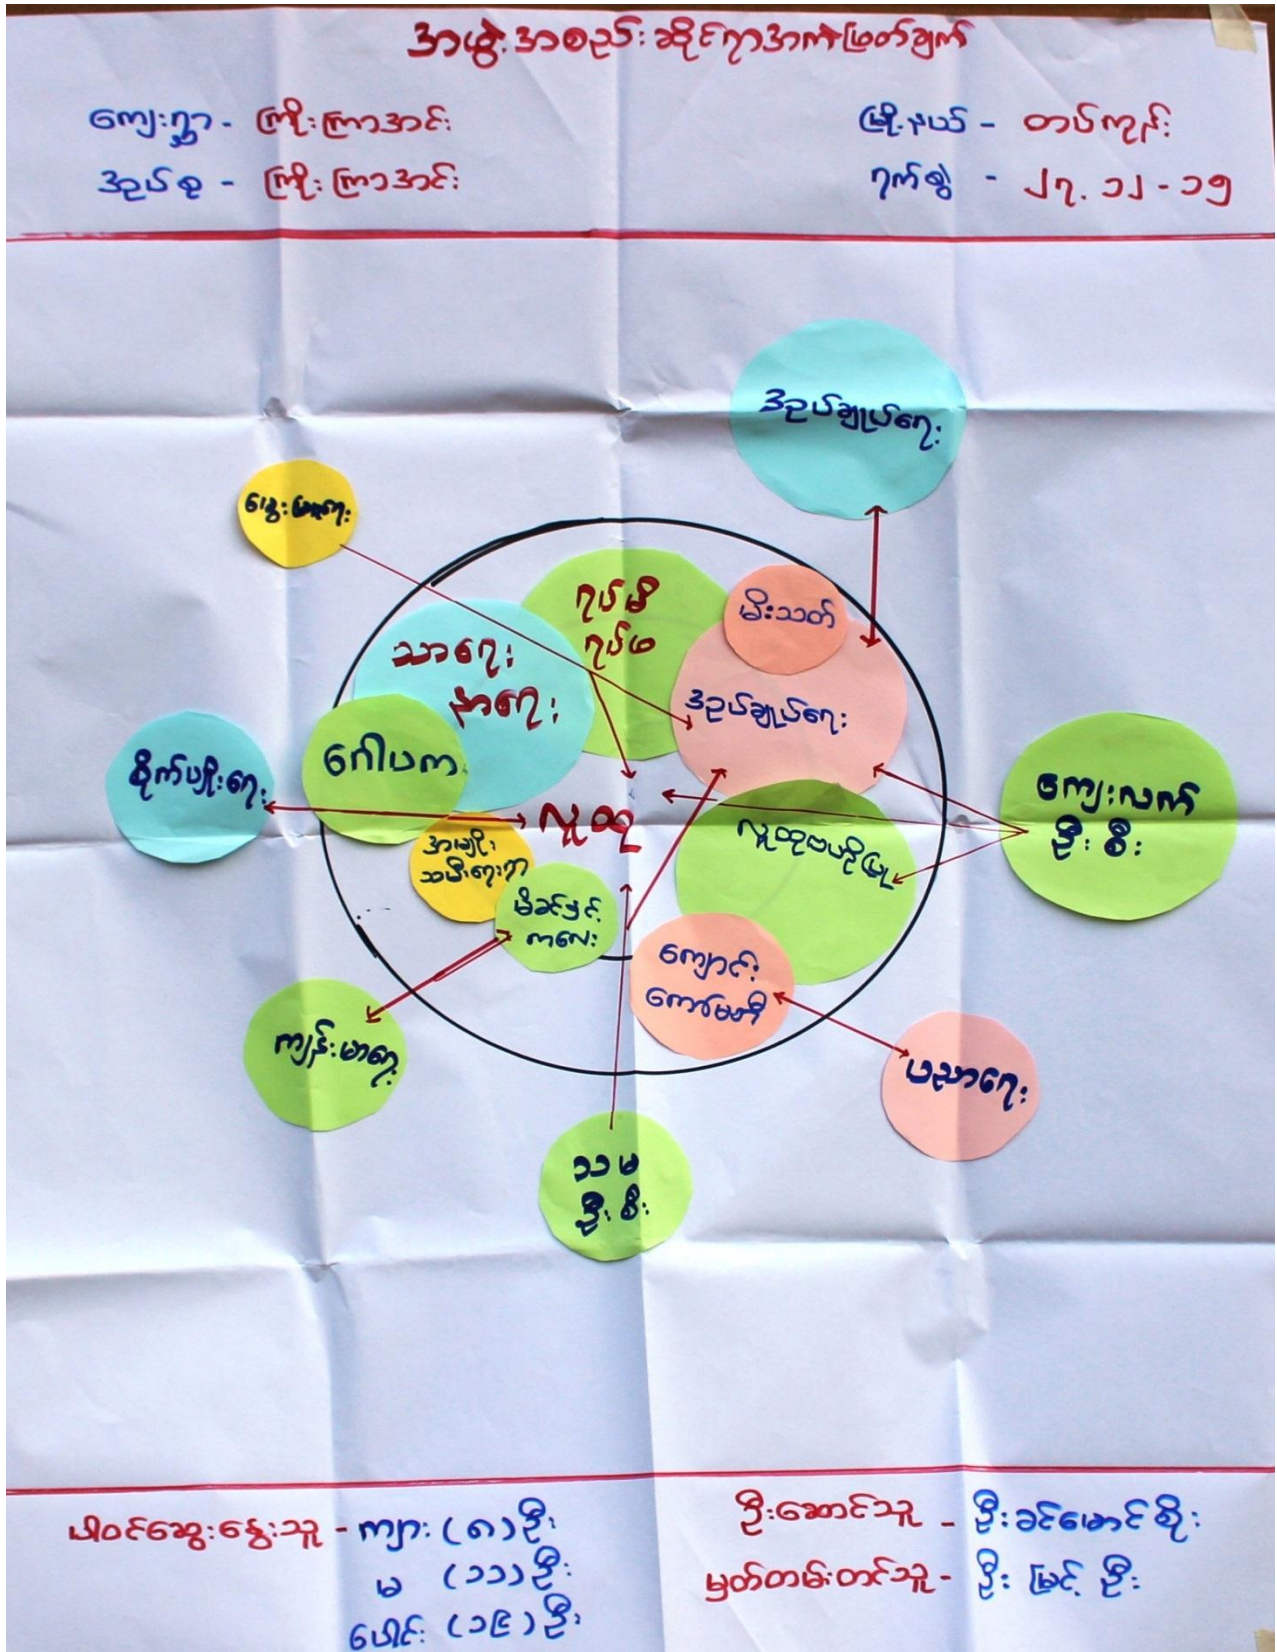 အဖွဲ့အစည်းဆိုင်ရာအကဲဖြတ်ချက်
ကျေးရွာ - ကြိုးကြာအင်း
မြို့နယ် - တပ်ကုန်း
အုပ်စု - ကြိုးကြာအင်း
ရက်စွဲ - ၂၇.၁၂-၁၅
အုပ်ချုပ်ရေး
မွေးမြူရေး
ရပ်မိ
ရပ်ဖ
မီးသတ်
သာရေး
နာရေး
အုပ်ချုပ်ရေး
ဂေါပက
စိုက်ပျိုးရေး
ကျေးလက်
ဦးစီး
လူထု
လူထုဗဟိုပြု
အမျိုး
သမီးရေးရာ
မိခင်နှင့်
ကလေး
ကျောင်း
ကော်မတီ
ကျန်းမာရေး
ပညာရေး
သမ
ဦးစီး
ပါဝင်ဆွေးနွေးသူ - ကျား (၈) ဦး
မ (၁၁) ဦး
ပေါင်း (၁၉) ဦး
ဦးဆောင်သူ - ဦးခင်မောင်စိုး
မှတ်တမ်းတင်သူ - ဦးမြင့်ဦး